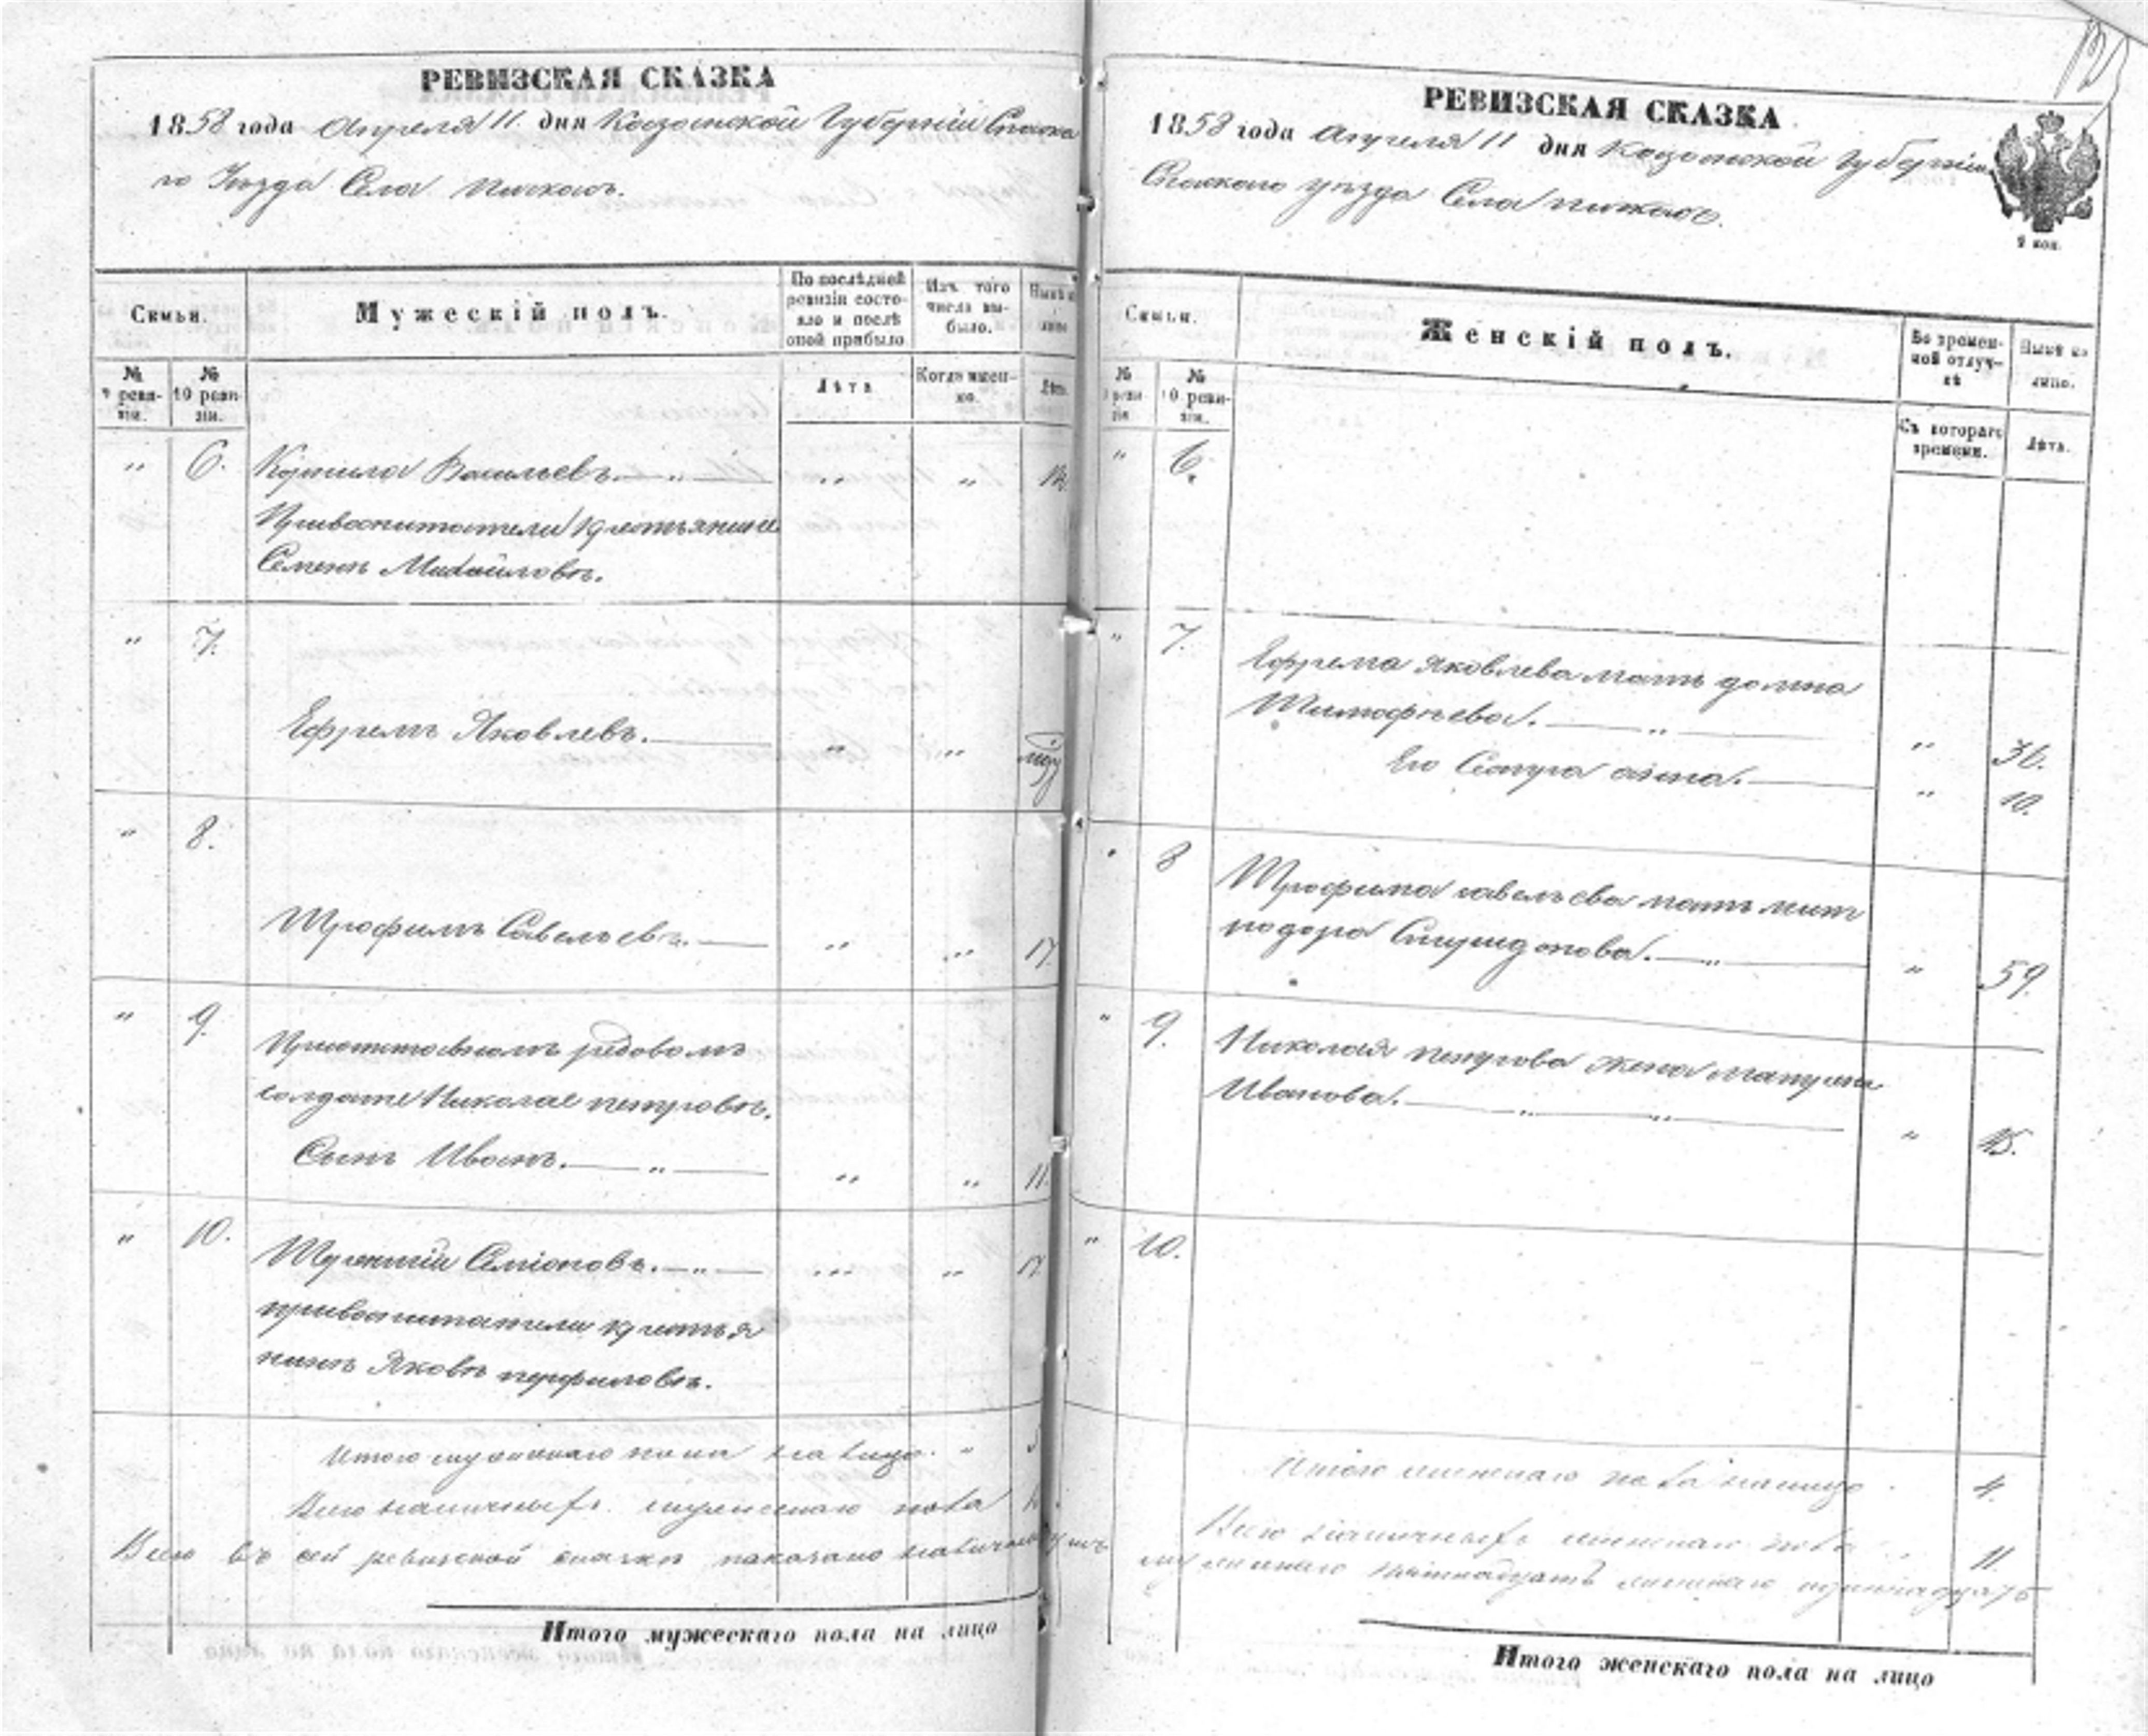 РЕВИЗСКАЯ СКАЗКА
1858 года Апреля 11 дня Казанской Губерніи Спаска
го Уезда Села
Семьи.
Мужескій полъ.
По послѣдней ревизіи состояло и послѣ оной прибыло
Изъ того числа выбыло.
Нынѣ на лицо
№ 9 ревизіи.
№ 10 ревизіи.
Лѣта
Когда именно.
Лѣта.
" 6. Корнила Васильевъ. " " "
Привоспитатели крестьянине
Семенѣ Михайловѣ.
" 7.
Ефремъ Яковлевъ. " "
" 8.
Трофимъ Савельевъ. " " 17.
" 9.
Приотставномъ рядовомъ
солдате Николае петровѣ.
Сынъ Иванъ. " " " 11.
" 10.
Терентій Семіоновъ. " " " 17.
привоспитатели крестья
нинѣ Яковѣ перфиловѣ.
Итого мужескаго пола на лицо. "
Всего наличныхъ мужескаго пола
Всего въ сей ревизской сказке показано наличныхъ душъ
Итого мужескаго пола на лицо
РЕВИЗСКАЯ СКАЗКА
1858 года Апреля 11 дня Казанской губерніи
Спаскаго уезда Села
2 коп.
Семьи.
Женскій полъ.
Во временной отлучкѣ
Нынѣ на лицо.
№ 9 ревизіи
№ 10 ревизіи.
Съ котораго времени.
Лѣта.
" 6.
" 7.
Ефрема Яковлева мать домна
Тимофѣева. " " 36.
Его Сестра анна. " 10.
" 8
Трофима савельева мать мит
родора Спиридонова. " " 59.
" 9.
Николая петрова жена матрена
Иванова. " " " 45.
" 10.
Итого женскаго пола налицо 4.
Всего наличныхъ женскаго пола 11.
мужескаго пятнадцать женскаго одиннадцать
Итого женскаго пола на лицо